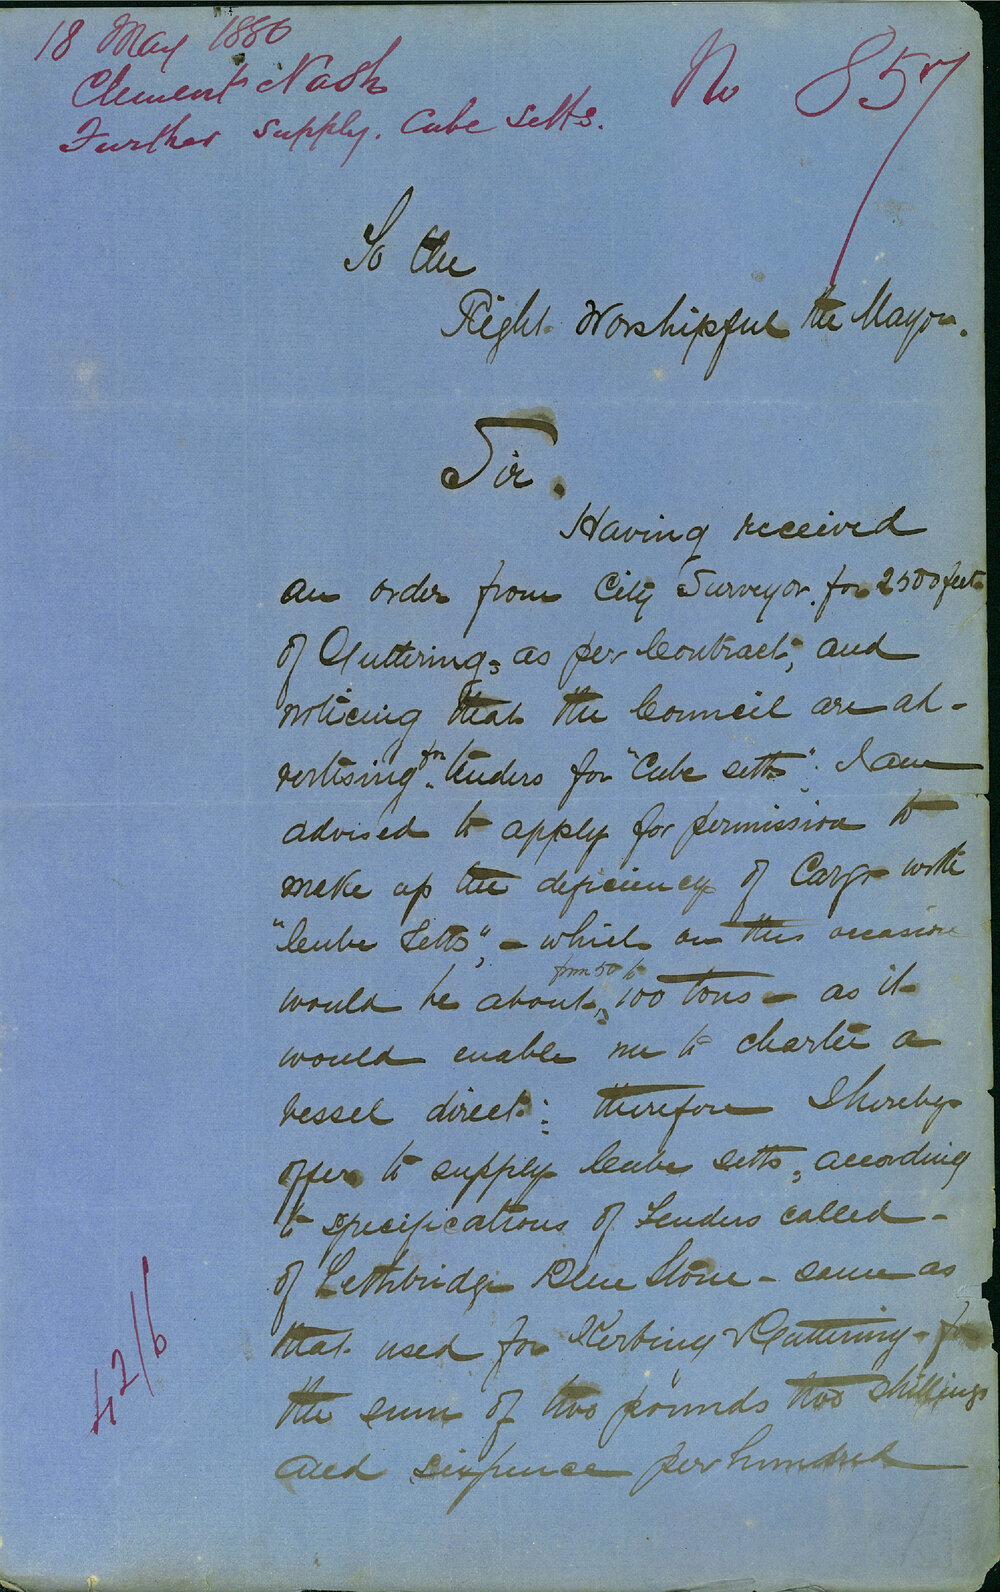 18 May 1880
Clement Nash
Further supply. Cube Setts.
No 857
To the
Right Worshipful the Mayor.
Sir.
Having received
an order from City Surveyor. for 2500 feet
of Guttering, as per Contract, and
noticing that the Council are ad-
vertising for tenders for "Cube setts". I am
advised to apply for permission to
make up the deficiency of Cargo with
"Cube Setts", - which on this occasion
would be about from 50 to 100 tons - as it
would enable me to charter a
vessel direct: therefore I hereby
offer to supply Cube setts, according
to specifications of Tenders called -
of Lethbridge Blue Stone - same as
that used for Kerbing & Guttering - for
the sum of two pounds two shillings
and sixpence per hundred
42/6